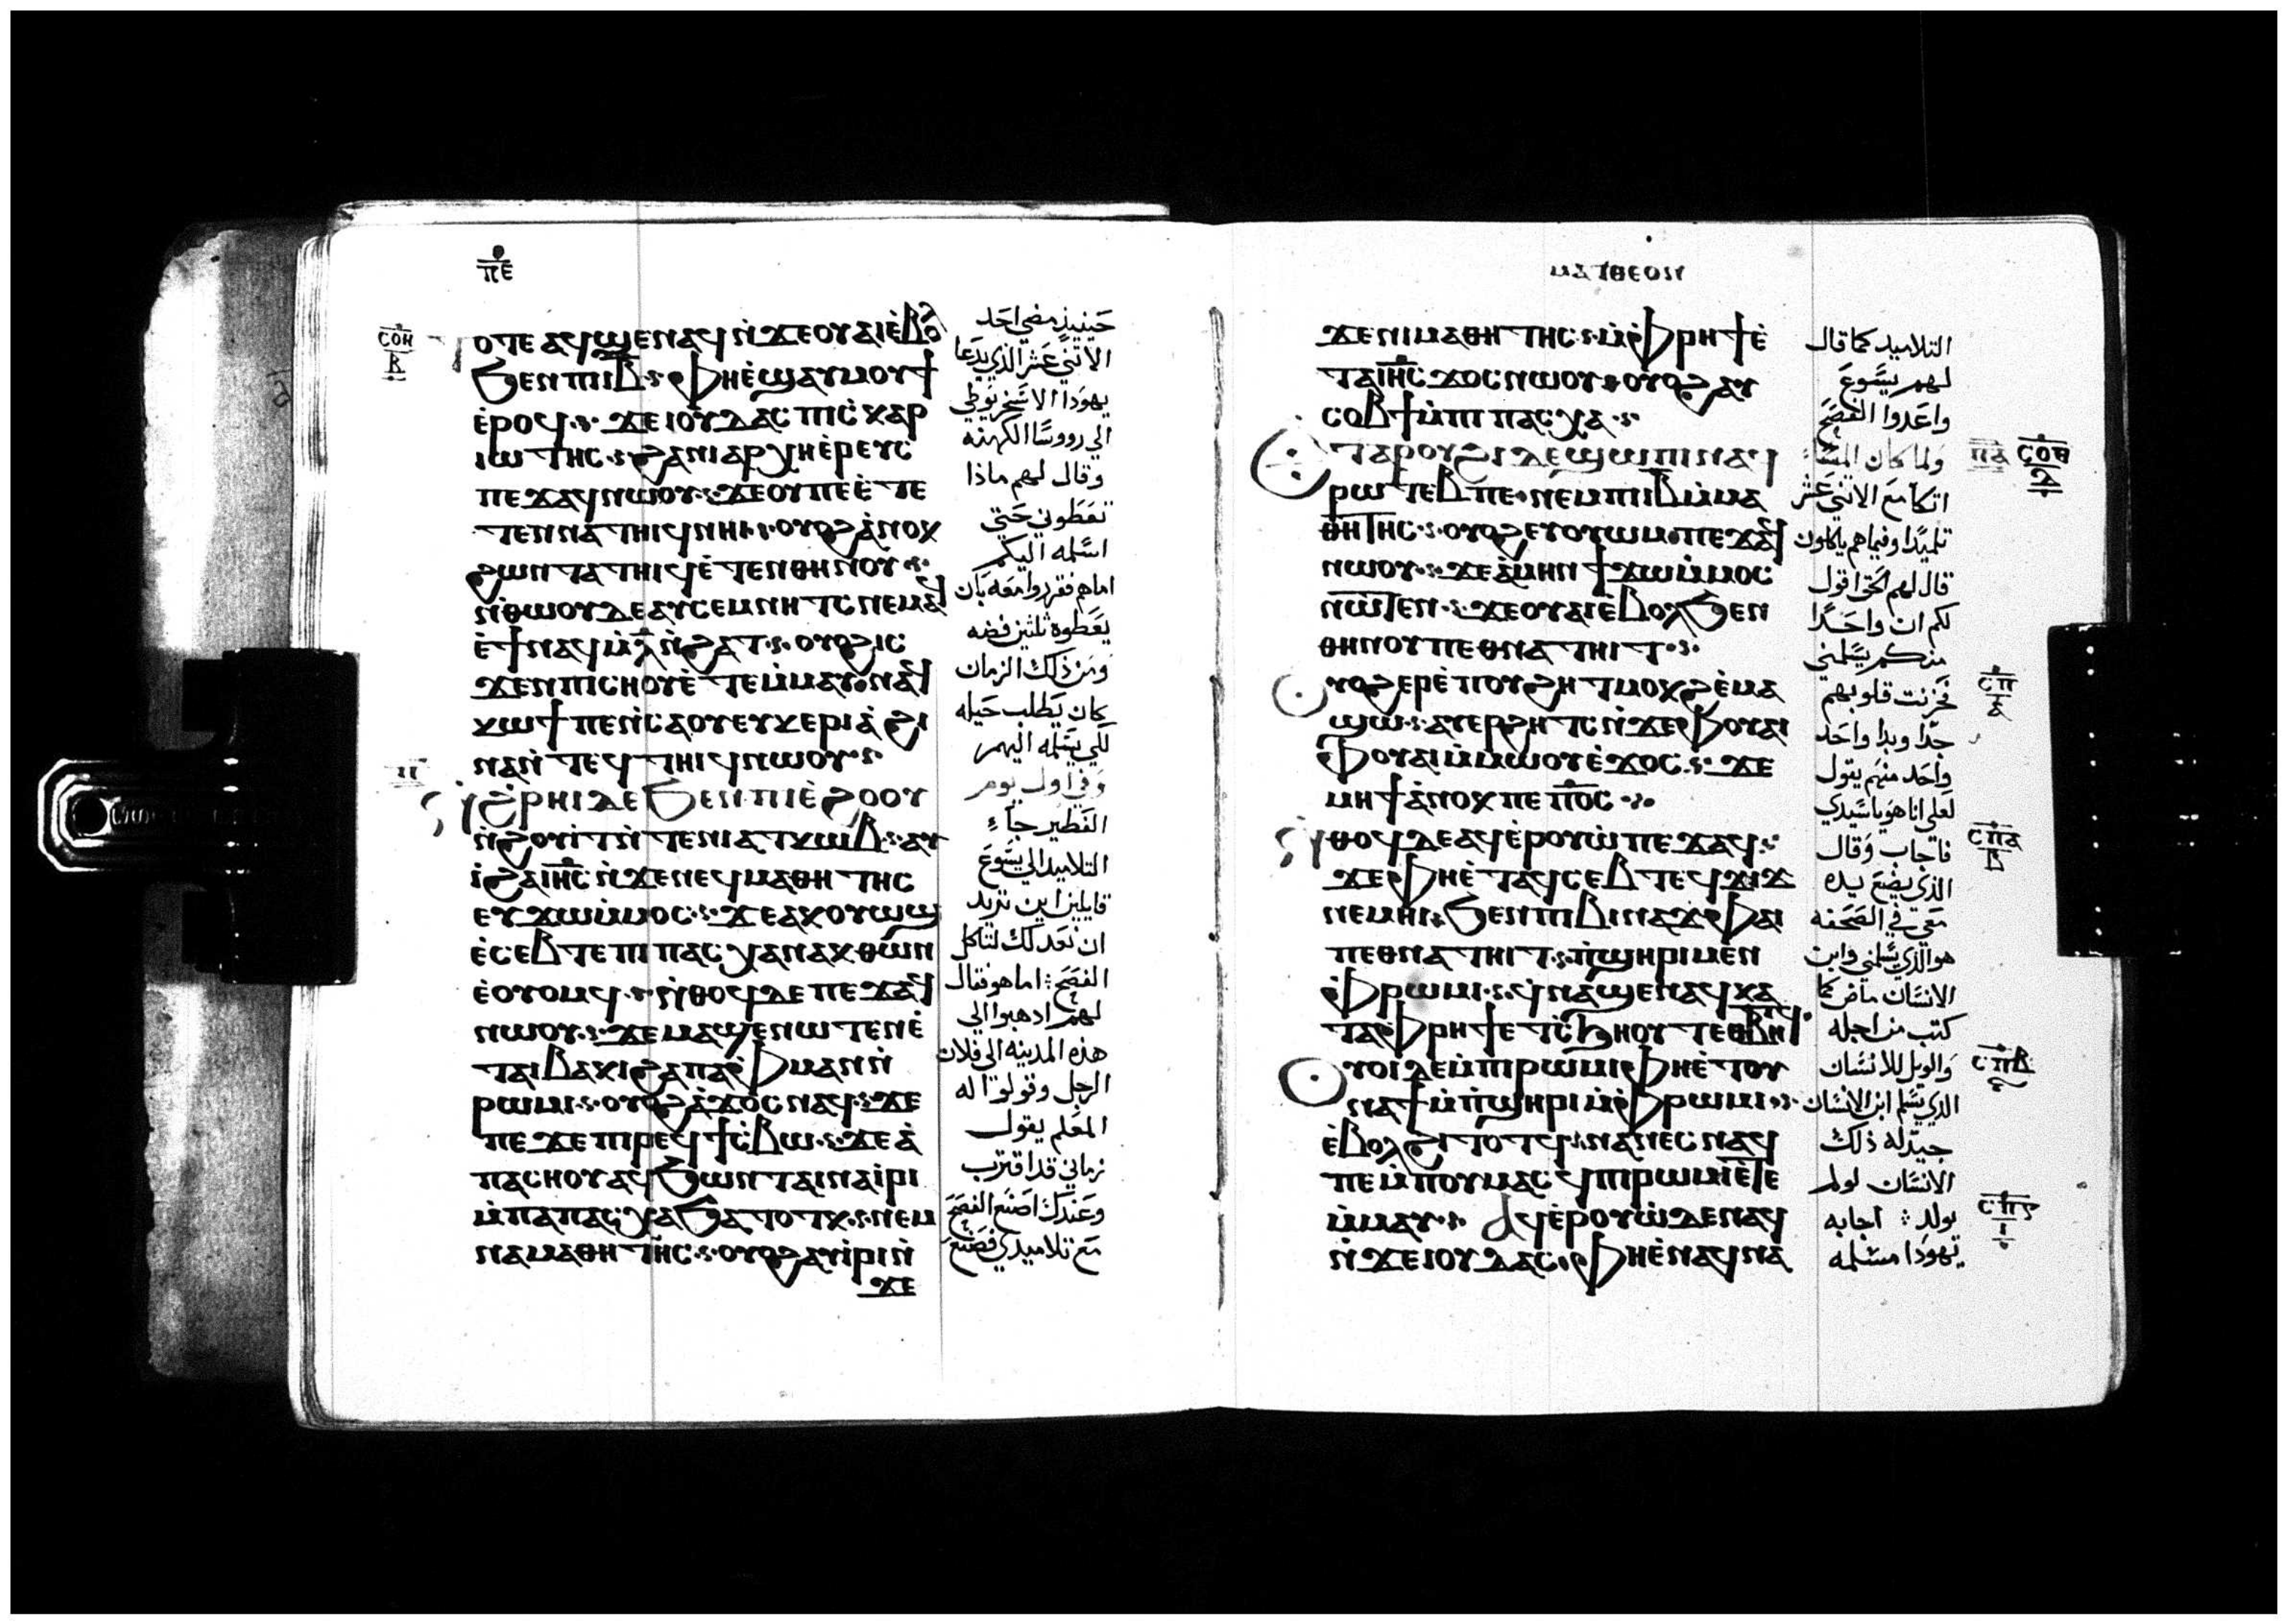 ⲡⲉ
ⲥⲟⲏ
ⲃ
ⲧⲟⲧⲉ ⲁϥϣⲉ ⲛⲁϥ ⲛ̇ϫⲉ ⲟⲩⲁⲓ ⲉ̇ⲃⲟⲗ
ϧⲉⲛ ⲡⲓⲓ̅ⲃ̅ ⲫⲏ ⲉ̇ϣⲁⲩⲙⲟⲩϯ
ⲉ̇ⲣⲟϥ ϫⲉ ⲓⲟⲩⲇⲁⲥ ⲡⲓⲥ̇ⲕⲁⲣ
ⲓⲱⲧⲏⲥ ϩⲁ ⲛⲓⲁⲣⲭⲏⲉ̇ⲣⲉⲩⲥ
ⲡⲉϫⲁϥ ⲛⲱⲟⲩ ϫⲉ ⲟⲩ ⲡⲉ ⲉ̇ⲧⲉ
ⲧⲉⲛⲛⲁⲧⲏⲓϥ ⲛⲏⲓ ⲟⲩⲟϩ ⲁ̇ⲛⲟⲕ
ϩⲱ ⲛⲧⲁⲧⲏⲓϥ ⲉ̇ⲧⲉⲛⲑⲏⲛⲟⲩ
ⲛ̇ⲑⲱⲟⲩ ⲇⲉ ⲁⲩⲥⲉⲙⲛⲏⲧⲥ ⲛⲉⲙⲁϥ
ⲉ̇ϯ ⲛⲁϥ ⲙ̇ⲗ̅ ⲛ̇ϩⲁⲧ ⲟⲩⲟϩ ⲓⲥ
ϫⲉⲛ ⲡⲓⲥⲏⲟⲩ ⲉ̇ⲧⲉⲙ̇ⲙⲁⲩ ⲛⲁϥ
ⲕⲱϯ ⲡⲉ ⲛ̇ⲥⲁ ⲟⲩⲉⲩⲕⲉⲣⲓⲁ̇ ϩⲓ
ⲛⲁ ⲛ̇ⲧⲉϥⲧⲏⲓϥ ⲛⲱⲟⲩ
ⲡ
ⲛ̇ϩ̇ⲣⲏⲓ ⲇⲉ ϧⲉⲛ ⲡⲓⲉ̇ϩⲟⲟⲩ
ⲛ̇ϩⲟⲩⲓ̇ⲧ ⲛ̇ⲧⲉ ⲛⲓⲁⲧⲕⲱⲃ ⲁⲩ
ⲓ̇ ϩⲁ ⲓⲏ̅ⲥ ⲛ̇ϫⲉ ⲛⲉϥⲙⲁⲑⲏⲧⲏⲥ
ⲉⲩϫⲱⲙ̇ⲙⲟⲥ ϫⲉ ⲁⲕⲟⲩⲱϣ
ⲉ̇ⲥⲉⲃⲧⲉ ⲡⲓⲡⲁⲥⲭⲁ ⲛⲁⲕ ⲑⲱⲛ
ⲉ̇ⲟⲩⲟⲙϥ ⲛ̇ⲑⲟϥ ⲇⲉ ⲡⲉϫⲁϥ
ⲛⲱⲟⲩ ϫⲉ ⲙⲁϣⲉⲛⲱⲧⲉⲛ ⲉ̇
ⲧⲁⲓⲃⲁⲕⲓ ϩⲁ ⲡⲁⲫⲙⲁⲛ ⲛ̇
ⲣⲱⲙⲓ ⲟⲩⲟϩ ⲁ̇ϫⲟⲥ ⲛⲁϥ ϫⲉ
ⲡⲉϫⲉ ⲡⲓⲣⲉϥϯⲥ̇ⲃⲱ ϫⲉ ⲁ̇
ⲡⲁⲥⲏⲟⲩ ⲁϥϧⲱⲛⲧ ⲁⲓⲛⲁⲓ̇ⲣⲓ
ⲙ̇ⲡⲁⲡⲁⲥⲭⲁ ϧⲁⲧⲟⲧⲕ ⲛⲉⲙ
ⲛⲁⲙⲁⲑⲏⲧⲏⲥ ⲟⲩⲟϩ ⲁⲩⲓ̇ⲣⲓ ⲛ̇
ϫⲉ
حينيذ مضى احد
الاثني عشر الذي يدعا
يهودا الاسخريوطي
الى رووسا الكهنه
وقال لهم ماذا
تعطوني حتي
اسلمه اليكم
اما هم فقرروا معه بان
يعطوه ثلثين فضه
ومن ذلك الزمان
كان يطلب حيله
لكي يسلمه اليهم
وفي اول يوم
الفطير جاء
التلاميد الى يسوع
قايلين اين تريد
ان نعد لك لتاكل
الفصح اما هو فقال
لهم ادهبوا الي
هذه المدينه الى فلان
الرجل وقولوا له
المعلم يقول
زماني قد اقترب
وعندك اصنع الفصح
مع تلاميدي فصنع
ⲙⲁⲧⲑⲉⲟⲛ
ϫⲉ ⲛⲓⲙⲁⲑⲏⲧⲏⲥ ⲙ̇ⲫⲣⲏϯ ⲉ̇
ⲧⲁ ⲓⲏ̅ⲥ ϫⲟⲥ ⲛⲱⲟⲩ ⲟⲩⲟϩ ⲁⲩ
ⲥⲟⲃϯ ⲙ̇ⲡⲓⲡⲁⲥⲭⲁ
ⲉⲧⲁ ⲣⲟⲩϩⲓ ⲇⲉ ϣⲱⲡⲓ ⲛⲁϥ
ⲣⲱⲧⲉⲃ ⲡⲉ ⲛⲉⲙ ⲡⲓⲓ̅ⲃ̅ ⲙ̇ⲙⲁ
ⲑⲏⲧⲏⲥ ⲟⲩⲟϩ ⲉⲩⲟⲩⲱⲙ ⲡⲉϫⲁϥ
ⲛⲱⲟⲩ ϫⲉ ⲁ̇ⲙⲏⲛ ϯϫⲱⲙ̇ⲙⲟⲥ
ⲛⲱⲧⲉⲛ ϫⲉ ⲟⲩⲁⲓ ⲉ̇ⲃⲟⲗ ϧⲉⲛ
ⲑⲏⲛⲟⲩ ⲡⲉⲑⲛⲁⲧⲏⲓⲧ
ⲟⲩⲟϩ ⲉⲣⲉ̇ ⲡⲟⲩϩⲏⲧ ⲙⲟⲕϩ ⲉ̇ⲙⲁ
ϣⲱ ⲁⲩⲉⲣϩⲏⲧⲥ ⲛ̇ϫⲉ ⲫⲟⲩⲁⲓ
ⲫⲟⲩⲁⲓ ⲙ̇ⲙⲱⲟⲩ ⲉ̇ϫⲟⲥ ϫⲉ
ⲙⲏϯ ⲁ̇ⲛⲟⲕ ⲡⲉ ⲡ̅ⲟ̅ⲥ
ⲛ̇ⲑⲟϥ ⲇⲉ ⲁϥⲉ̇ⲣⲟⲩⲱ̇ ⲡⲉϫⲁϥ
ϫⲉ ⲫⲏ ⲉ̇ⲧⲁϥⲥⲉⲃⲧⲉϥϫⲓϫ
ⲛⲉⲙⲏⲓ ϧⲉⲛ ⲡⲓⲃⲓⲛⲁϫ ⲫⲁⲓ
ⲡⲉⲑⲛⲁⲧⲏⲓⲧ ⲡ̇ϣⲏⲣⲓ ⲙⲉ̇ⲛ
ⲙ̇ⲫⲣⲱⲙⲓ ϥ̇ⲛⲁϣⲉ ⲛⲁϥ ⲕⲁ
ⲧⲁⲫⲣⲏϯ ⲉⲧⲥ̇ϧⲏⲟⲩⲧ ⲉⲑⲃⲏⲧϥ
ⲟⲩⲟⲓ ⲇⲉ ⲙ̇ⲡⲓⲣⲱⲙⲓ ⲫⲏ ⲉ̇ⲧⲟⲩ
ⲛⲁϯ ⲙ̇ⲡ̇ϣⲏⲣⲓ ⲙ̇ⲫⲣⲱⲙⲓ
ⲉ̇ⲃⲟⲗϩⲓⲧⲟⲧϥ ⲛⲁⲛⲉⲥ ⲛⲁϥ
ⲡⲉ ⲙ̇ⲡⲟⲩⲙⲁⲥϥ ⲡⲓⲣⲱⲙⲓ ⲉ̇ⲧⲉ
ⲙ̇ⲙⲁⲩ ⲁϥⲉ̇ⲣⲟⲩⲱ̇ ⲇⲉ ⲛⲁϥ
ⲛ̇ϫⲉ ⲓⲟⲩⲇⲁⲥ ⲫⲏ ⲉ̇ⲛⲁϥⲛⲁ
التلاميد كما قال
لهم يسوع
واعدوا الفصح
ولما كان المساء
اتكا مع الاثني عشر
تلميدا وفيما هم ياكلون
قال لهم الحق اقول
لكم ان واحدا
منكم يسلمني
فحزنت قلوبهم
جدا وبدا واحد
واحد منهم يقول
لعلي انا هو يا سيدي
فاجاب وقال
الذي يضع يده
معي في الصحفه
هو الذي يسلمني وابن
الانسان ماض كما
كتب من اجله
والويل للانسان
الذي يسلم ابن الانسان
جيد له ذلك
الانسان لو لم
يولد اجابه
يهودا مسلمه
ⲡⲁ ⲥⲟⲑ
ⲇ
ⲥⲡ
ⲁ
ⲥⲡⲁ
ⲃ
ⲥⲡⲃ
ⲥⲡⲅ
ⲓ